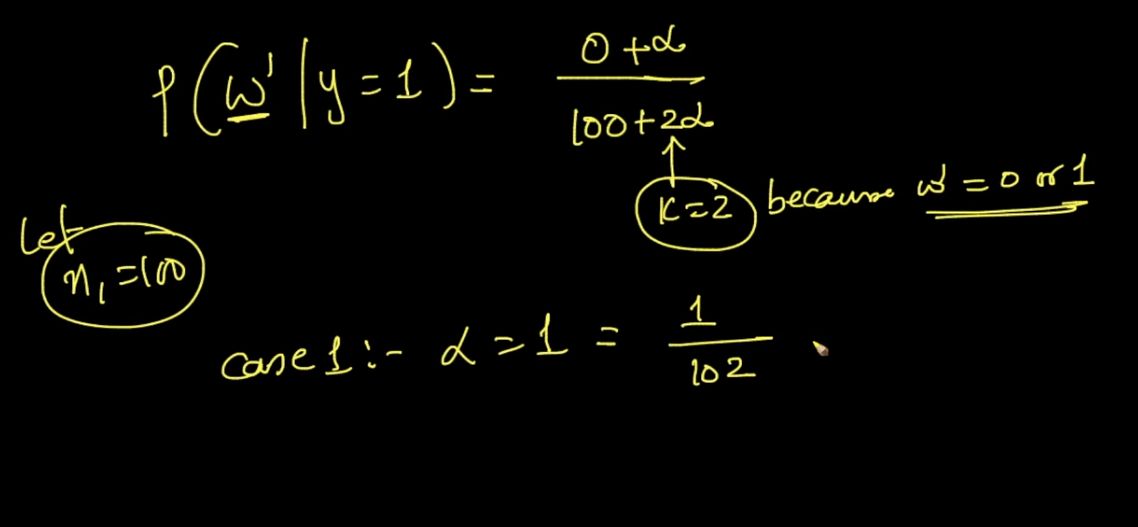 P(w' | y = 1) = 0 + α / 100 + 2α
K = 2 because w' = 0 or 1
Let
n₁ = 100
case 1 :- α = 1 = 1 / 102